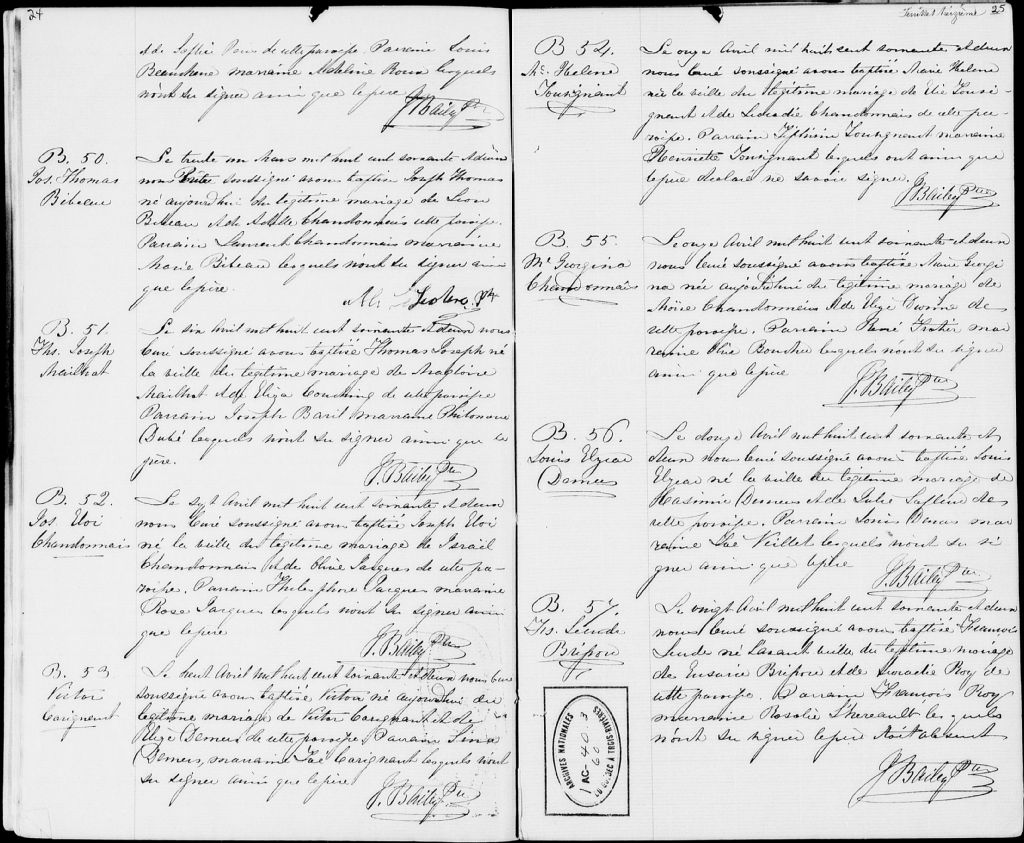 24
et de Sophie de cette paroisse. Parrain Louis
Beauchene marraine Adeline Roux lesquels
n'ont su signer ainsi que le père
J. Bailey Ptre
B. 50.
Jos. Thomas
Bibeau
Le trente un Mars mil huit cent soixante et deux
nous Prêtre soussigné avons baptisé Joseph Thomas
né aujourd'hui du légitime mariage de Léon
Bibeau et de Adèle Chandonnais de cette paroisse.
Parrain Laurent Chandonnais marraine
Marie Bibeau lesquels n'ont su signer ainsi
que le père.
Leclerc Ptre
B. 51.
Ths. Joseph
Mailhot
Le six Avril mil huit cent soixante et deux nous
Curé soussigné avons baptisé Thomas Joseph né
la veille du légitime mariage de
Mailhot et de Eliza de cette paroisse
Parrain Joseph Baril marraine Philomène
Dubé lesquels n'ont su signer ainsi que le
père.
J. Bailey Ptre
B. 52.
Jos. Eloi
Chandonnais
Le sept Avril mil huit cent soixante et deux
nous Curé soussigné avons baptisé Joseph Eloi
né la veille du légitime mariage de Israël
Chandonnais et de Olive Jacques de cette pa-
roisse. Parrain Thélesphore Jacques marraine
Rose Jacques lesquels n'ont su signer ainsi
que le père
J. Bailey Ptre
B. 53
Victor
Carignant
Le huit Avril mil huit cent soixante et deux nous Curé
soussigné avons baptisé Victor né aujourd'hui du
légitime mariage de Victor Carignant et de
Elize Demers de cette paroisse. Parrain
Demers, marraine Zoé Carignant lesquels n'ont
su signer ainsi que le père
J. Bailey Ptre
Feuillet treizième 25
B 54.
Me. Helene
Tousignant
Le onze Avril mil huit cent soixante et deux
nous Curé soussigné avons baptisé Marie Helene
née la veille du légitime mariage de Elie Tousi-
gnant et de Léocadie Chandonnais de cette pa-
roisse. Parrain Tousignant marraine
Henriette Tousignant lesquels ont ainsi que
le père déclaré ne savoir signer.
J. Bailey Ptre
B. 55.
Me Georgina
Chandonnais
Le onze Avril mil huit cent soixante et deux
nous Curé soussigné avons baptisé Marie Georgi
na née aujourd'hui du légitime mariage de
Moïse Chandonnais et de Elize de
cette paroisse. Parrain René mar
raine Olive Boucher lesquels n'ont su signer
ainsi que le père
J. Bailey Ptre
B. 56.
Louis Elzéar
Demers
Le douze Avril mil huit cent soixante et
deux nous Curé soussigné avons baptisé Louis
Elzéar né la veille du légitime mariage de
Maxime Demers et de Julie de
cette paroisse. Parrain Louis Demers mar
raine Zoé Veillet lesquels n'ont su si
gner ainsi que le père
J. Bailey Ptre
B. 57.
Frs.
Brisson
Le vingt Avril mil huit cent soixante et deux
nous Curé soussigné avons baptisé François
né l'avant veille du légitime mariage
de et de Roy de
cette paroisse Parrain François Roy
marraine Rosalie Thereault lesquels
n'ont su signer le père étoit absent
J. Bailey Ptre
ARCHIVES NATIONALES
1 AC- 40 3
60
DU QUÉBEC À TROIS-RIVIÈRES